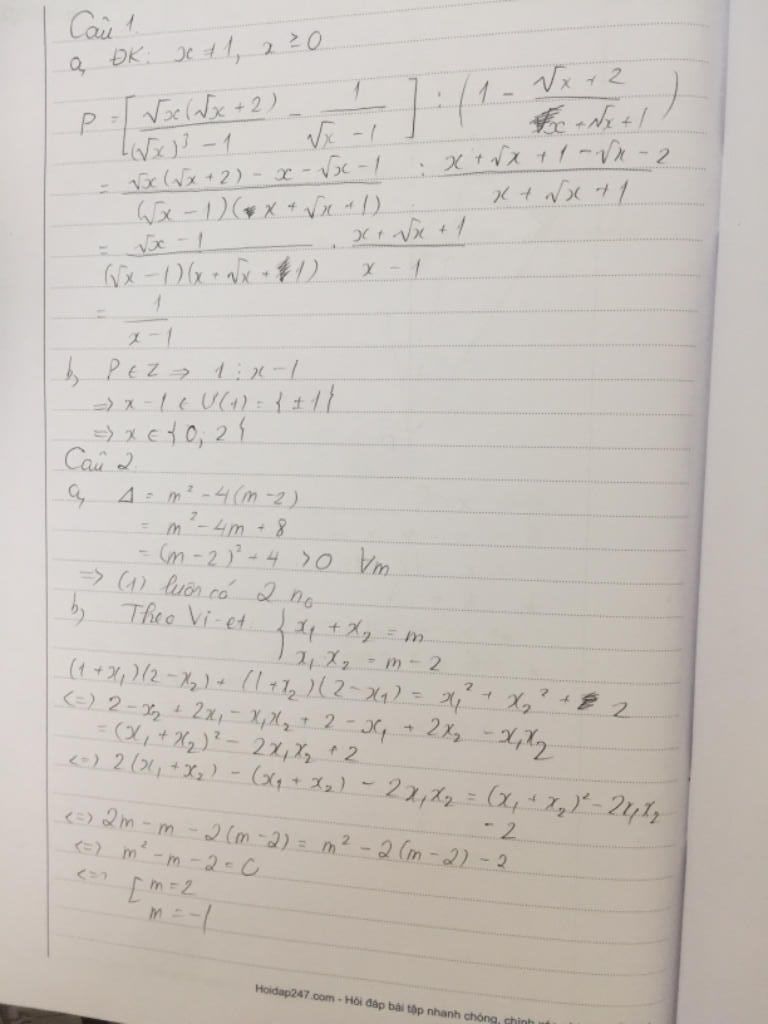 Câu 1.
a, ĐK: x ≠ 1, x ≥ 0
P = [ √x(√x + 2) / (√x)³ - 1 - 1 / √x - 1 ] : ( 1 - √x + 2 / x + √x + 1 )
= √x(√x + 2) - x - √x - 1 / (√x - 1)(x + √x + 1) : x + √x + 1 - √x - 2 / x + √x + 1
= √x - 1 / (√x - 1)(x + √x + 1) . x + √x + 1 / x - 1
= 1 / x - 1
b, P ∈ Z => 1 ⋮ x - 1
=> x - 1 ∈ Ư(1) = { ± 1 }
=> x ∈ { 0; 2 }
Câu 2
a, Δ = m² - 4(m - 2)
= m² - 4m + 8
= (m - 2)² + 4 > 0 ∀m
=> (1) luôn có 2 n₀
b, Theo Vi-et { x₁ + x₂ = m
x₁ x₂ = m - 2
(1 + x₁)(2 - x₂) + (1 + x₂)(2 - x₁) = x₁² + x₂² + 2
<=> 2 - x₂ + 2x₁ - x₁x₂ + 2 - x₁ + 2x₂ - x₁x₂
= (x₁ + x₂)² - 2x₁x₂ + 2
<=> 2(x₁ + x₂) - (x₁ + x₂) - 2x₁x₂ = (x₁ + x₂)² - 2x₁x₂
- 2
<=> 2m - m - 2(m - 2) = m² - 2(m - 2) - 2
<=> m² - m - 2 = 0
<=> [ m = 2
m = -1
Hoidap247.com - Hỏi đáp bài tập nhanh chóng, chính